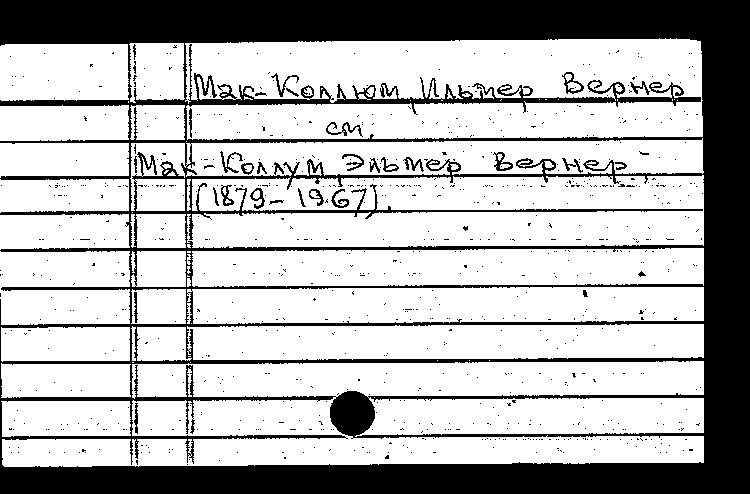 Мак-Коллюм, Ильмер Вернер
см.
Мак-Коллум, Эльмер Вернер
(1879-1967).